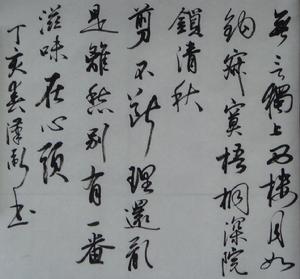 無言獨上西樓月如
鈎寂寞梧桐深院
鎖清秋
剪不斷理還亂
是離愁別有一番
滋味在心頭
丁亥春漢新书